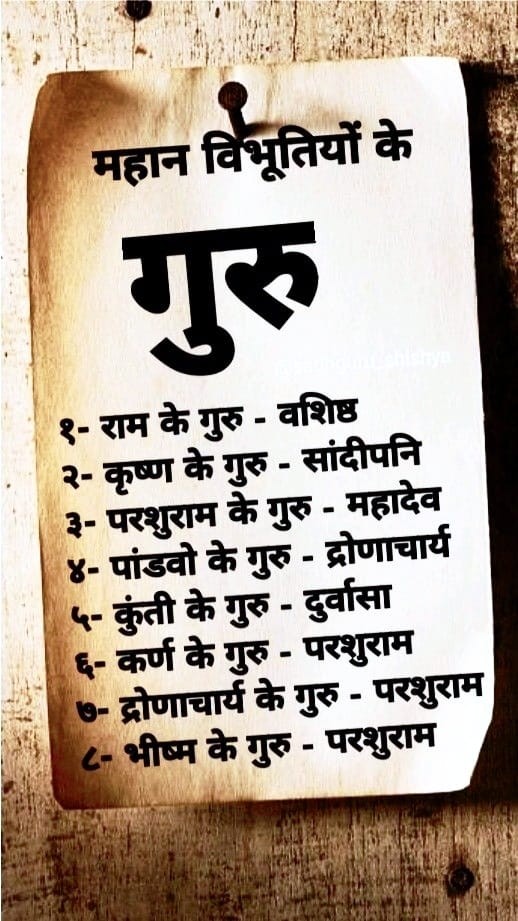 महान विभूतियों के
गुरु
१- राम के गुरु - वशिष्ठ
२- कृष्ण के गुरु - सांदीपनि
३- परशुराम के गुरु - महादेव
४- पांडवो के गुरु - द्रोणाचार्य
५- कुंती के गुरु - दुर्वासा
६- कर्ण के गुरु - परशुराम
७- द्रोणाचार्य के गुरु - परशुराम
८- भीष्म के गुरु - परशुराम